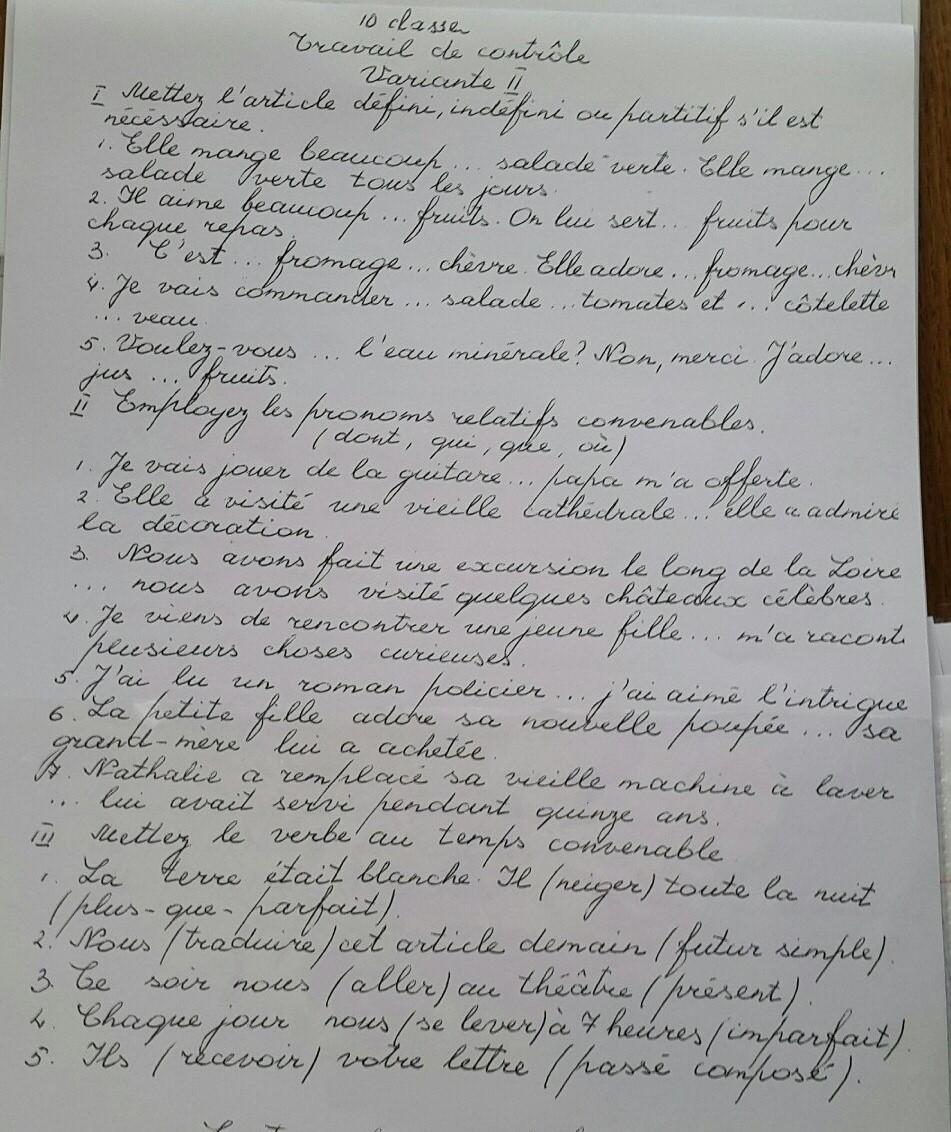 10 classe
Travail de contrôle
Variante II
I Mettez l'article défini, indéfini ou partitif s'il est
nécéssaire.
1. Elle mange beaucoup... salade verte. Elle mange...
salade verte tous les jours.
2. Il aime beaucoup... fruits. On lui sert... fruits pour
chaque repas.
3. C'est... fromage... chèvre. Elle adore... fromage... chèvr
4. Je vais commander... salade... tomates et... côtelette
... veau.
5. Voulez-vous... l'eau minérale? Non, merci. J'adore...
jus... fruits.
II Employez les pronoms relatifs convenables.
(dont, qui, que, où)
1. Je vais jouer de la guitare... papa m'a offerte.
2. Elle a visité une vieille cathédrale... elle a admiré
la décoration.
3. Nous avons fait une excursion le long de la Loire
... nous avons visité quelques châteaux célèbres.
4. Je viens de rencontrer une jeune fille... m'a racont
plusieurs choses curieuses.
5. J'ai lu un roman policier... j'ai aimé l'intrigue
6. La petite fille adore sa nouvelle poupée... sa
grand-mère lui a achetée.
7. Nathalie a remplacé sa vieille machine à laver
... lui avait servi pendant quinze ans.
III Mettez le verbe au temps convenable
1. La terre était blanche. Il (neiger) toute la nuit
(plus-que-parfait).
2. Nous (traduire) cet article demain (futur simple).
3. Ce soir nous (aller) au théâtre (présent).
4. Chaque jour nous (se lever) à 7 heures (imparfait).
5. Ils (recevoir) votre lettre (passé composé).